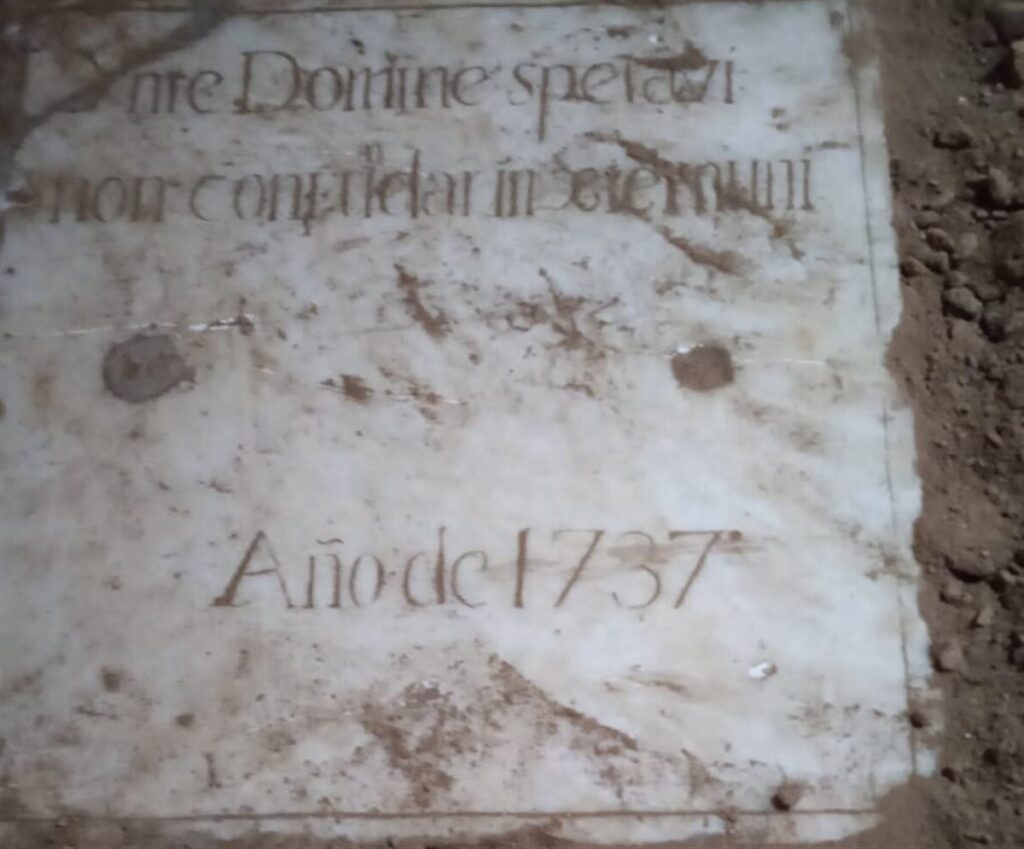 In te Domine speravi
non confundar in æternum
Año de 1737